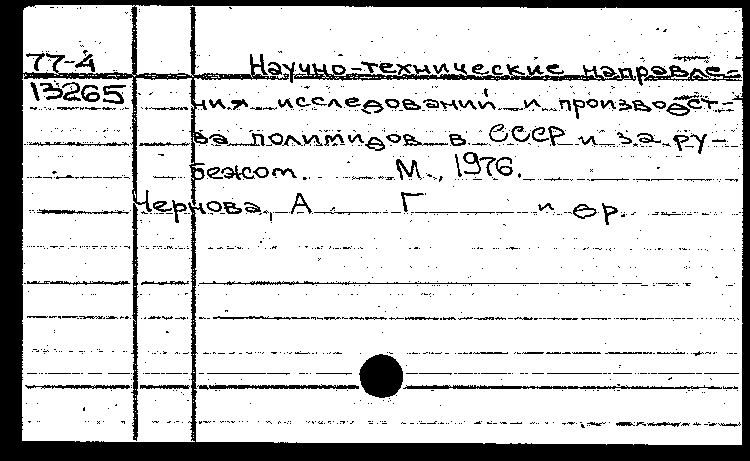 77-4
Научно-технические направле-
13265
ния исследований и производст-
ва полимидов в СССР и за ру-
бежом. М., 1976.
Чернова, А Г и др.